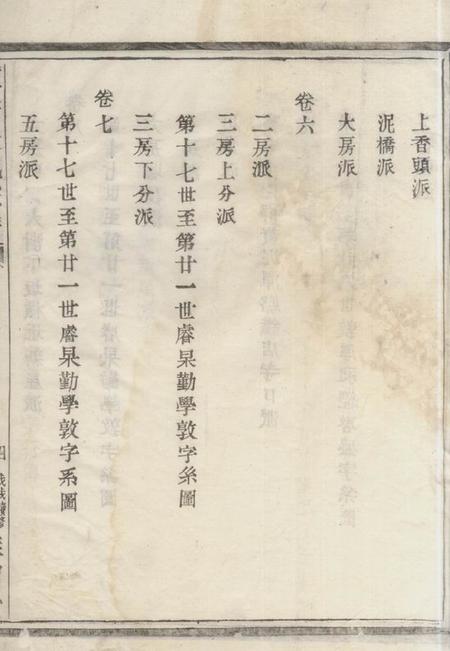 上香頭派
泥橋派
大房派
卷六
二房派
三房上分派
第十七世至第廿一世睿杲勤學敦字糸圖
三房下分派
卷七
第十七世至第廿一世睿杲勤學敦字系圖
五房派
四